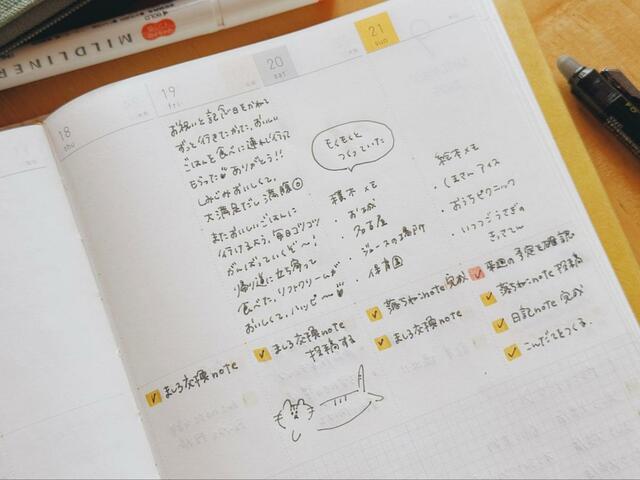 MILDLINER
18
thu
19
fri
20
sat
21
sun
お祝いと記念日をかねて
ずっと行きたかった、おいしい
ごはんを食べに連れて行って
もらった ありがとう!!
しみじみおいしくて、
大満足だし満腹
またおいしいごはんに
行けるよう、毎日コツコツ
がんばっていくぞ〜!
帰り道に立ち寄って
食べた、ソフトクリームが
おいしくて、ハッピ〜
もくもくと
つくっていた
積木メモ
・お城
・名古屋
・ジュースの場所
・保育園
絵本メモ
・くまさんアイス
・おうちピクニック
・いつつごうさぎの
きっさてん
ましろ交換note
ましろ交換note
投稿する
落ちねこnote完成
ましろ交換note
来週の予定を確認
落ちねこnote投稿
日記note完成
こんだてをつくる